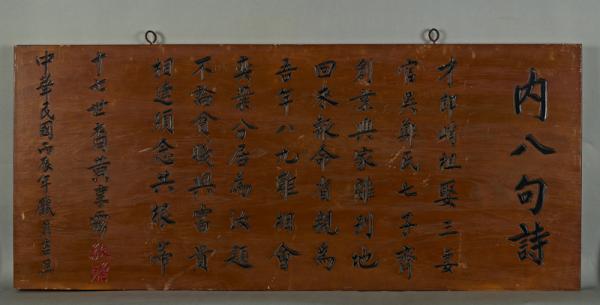 內八句詩
才郎峭祖娶三妻
官吳鄭氏七子齊
創業興家離別地
回來報命自親為
吾年八九難相會
真葉分居為汝題
不論貧賤與富貴
相逢須念共根蒂
十七世裔黃
中華民國丙辰年臘月吉旦